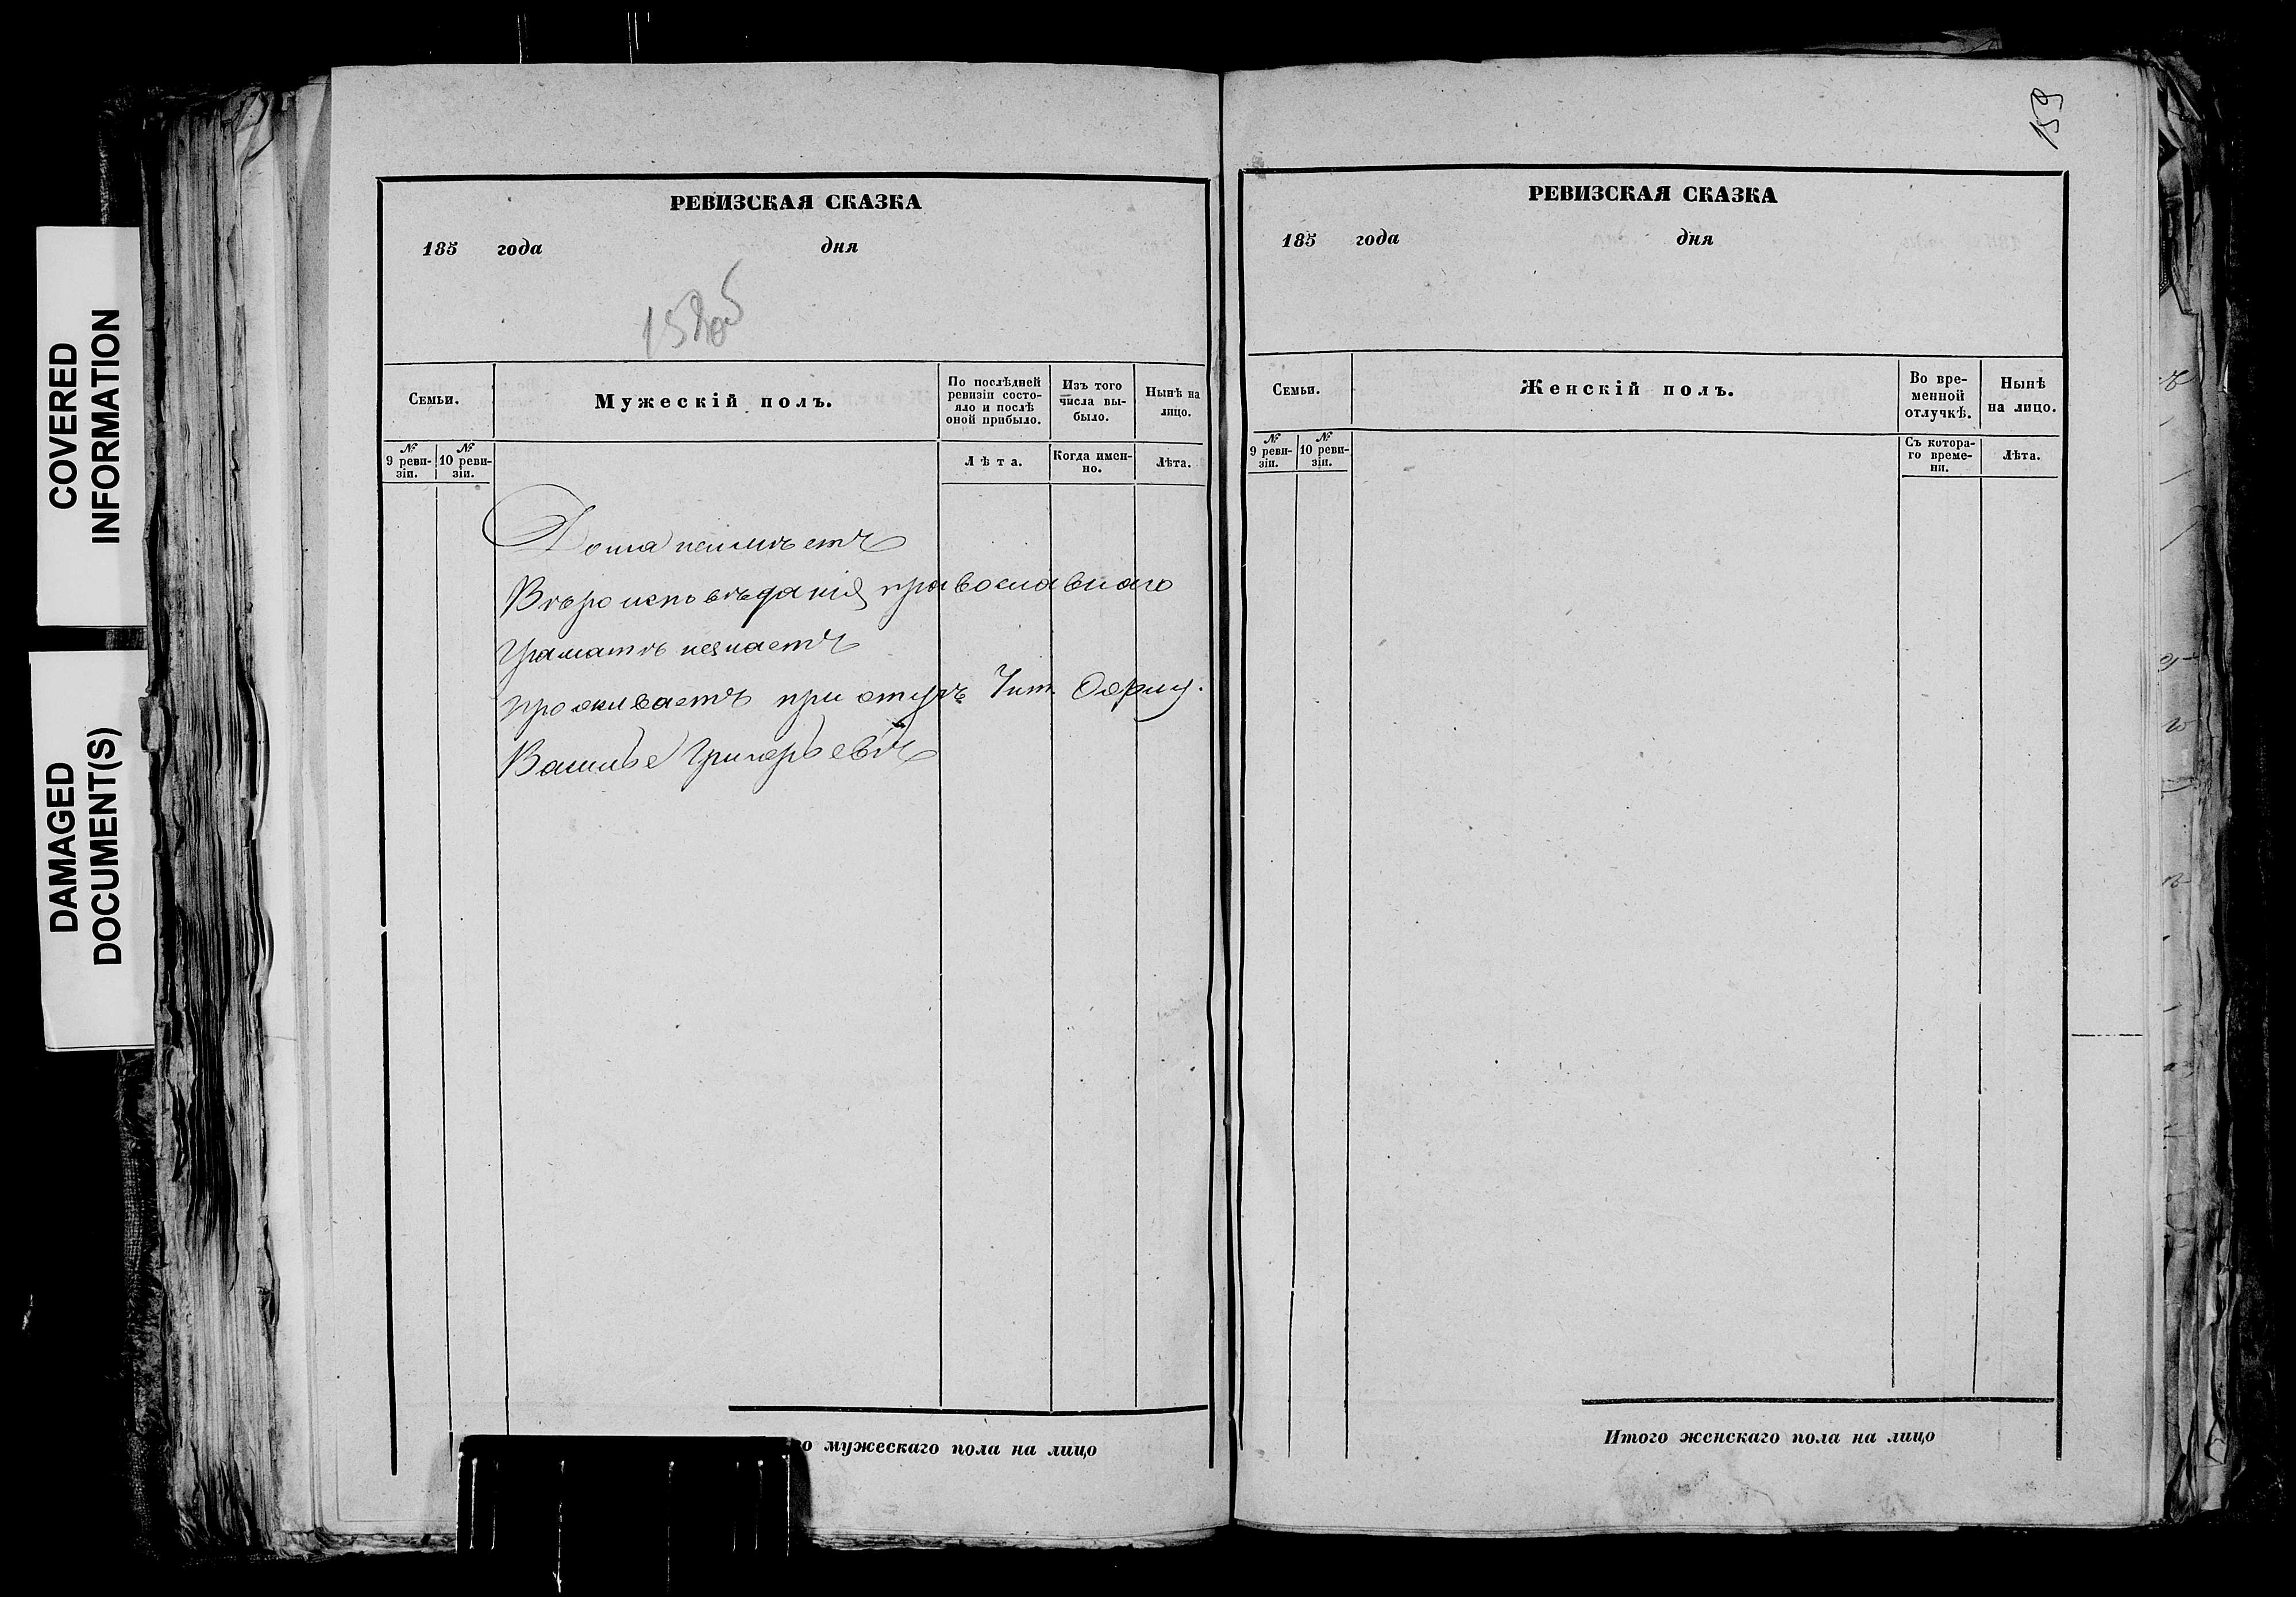 COVERED
INFORMATION
DAMAGED
DOCUMENT(S)
РЕВИЗСКАЯ СКАЗКА
185 года дня
158об
Семьи.
Мужескій полъ.
По послѣдней
ревизіи состо-
яло и послѣ
оной прибыло.
Изъ того
числа вы-
было.
Нынѣ на
лицо.
№
9 реви-
зіи.
№
10 реви-
зіи.
Лѣта.
Когда имен-
но.
Лѣта.
Дома неимѣетъ
Вѣроисповѣданія православнаго
Грамматѣ незнаетъ
проживаетъ при
Василье Григорьевичѣ
о мужескаго пола на лицо
159
РЕВИЗСКАЯ СКАЗКА
185 года дня
Семьи.
Женскій полъ.
Во вре-
менной
отлучкѣ.
Нынѣ
на лицо.
№
9 реви-
зіи.
№
10 реви-
зіи.
Съ котора-
го време-
ни.
Лѣта.
Итого женскаго пола на лицо